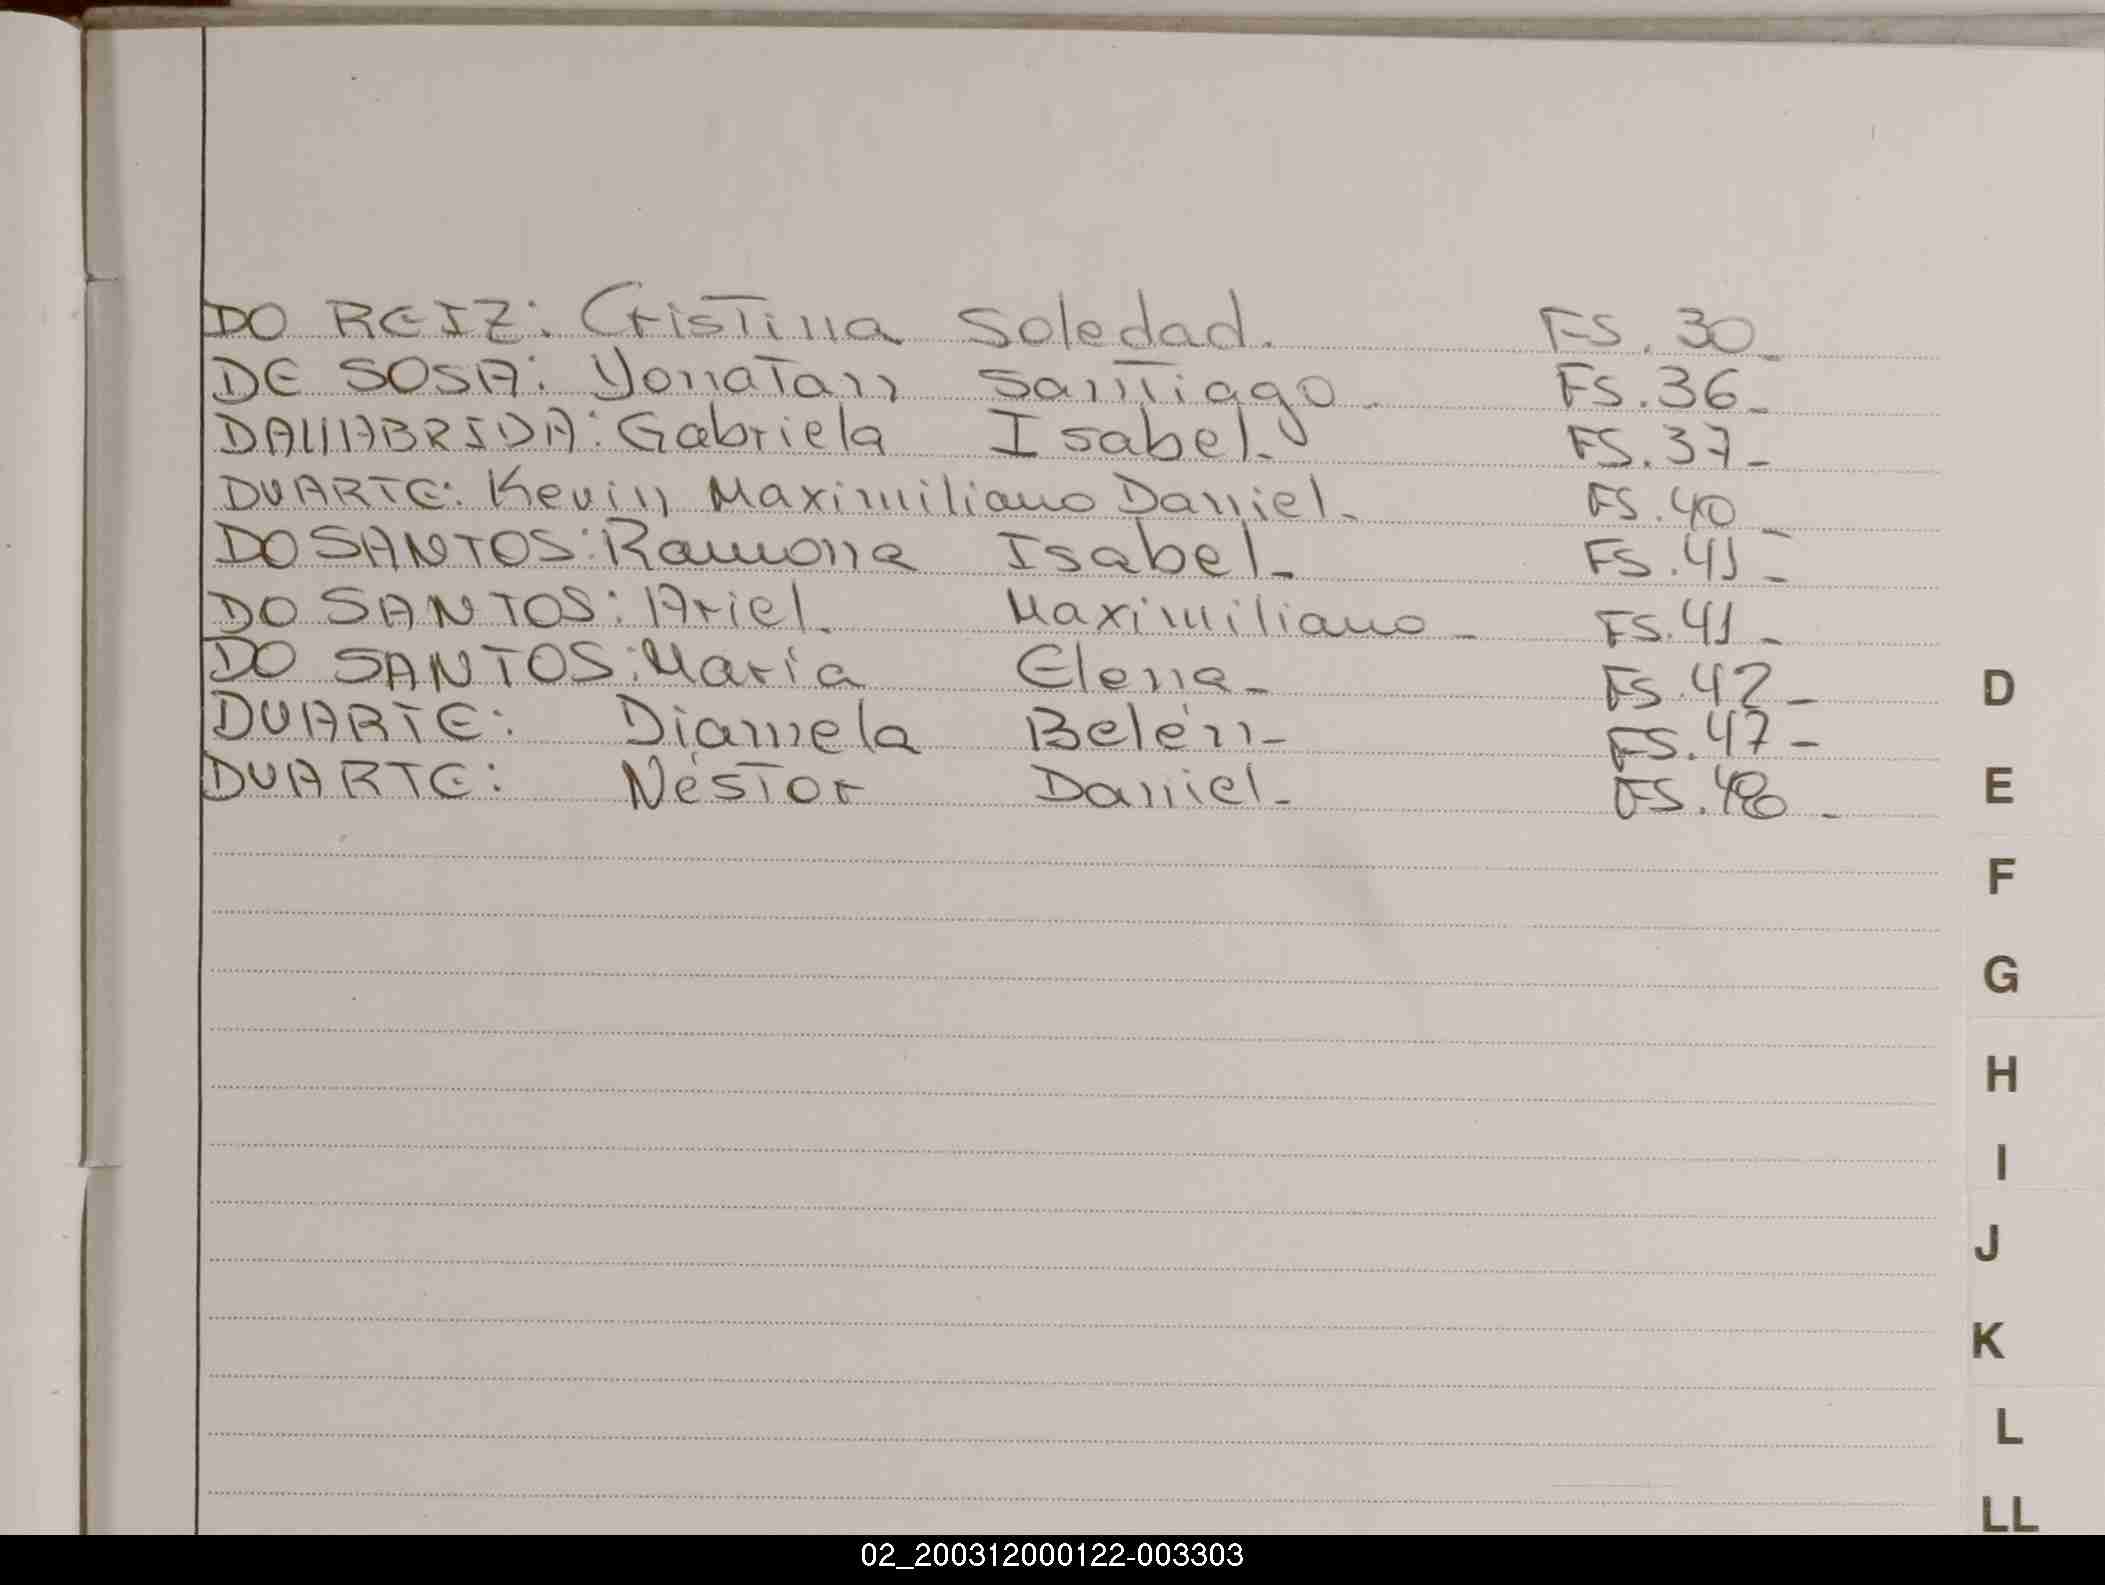 DO REIZ: Cristina Soledad. FS. 30_
DE SOSA: Yonatan Santiago_ FS. 36_
Gabriela Isabel_ FS. 37_
DUARTE: Kevin Maximiliano Daniel_ FS. 40_
DO SANTOS: Ramona Isabel_ FS. 41_
DO SANTOS: Ariel Maximiliano_ FS. 41_
DO SANTOS: María Elena_ FS. 42_
DUARTE: Diamela Belén_ FS. 47_
DUARTE: Néstor Daniel_ FS.
D
E
F
G
H
I
J
K
L
LL
02_200312000122-003303